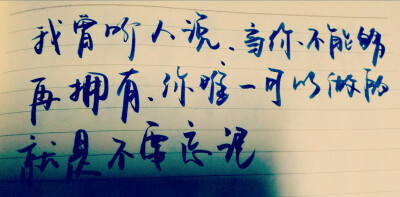 我曾听人说、当你不能够
再拥有、你唯一可以做的
就是不要忘记